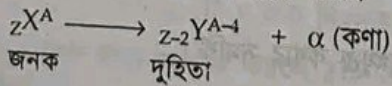 zX^A ⟶ z-2Y^A-4 + α (কণা)
জনক দুহিতা